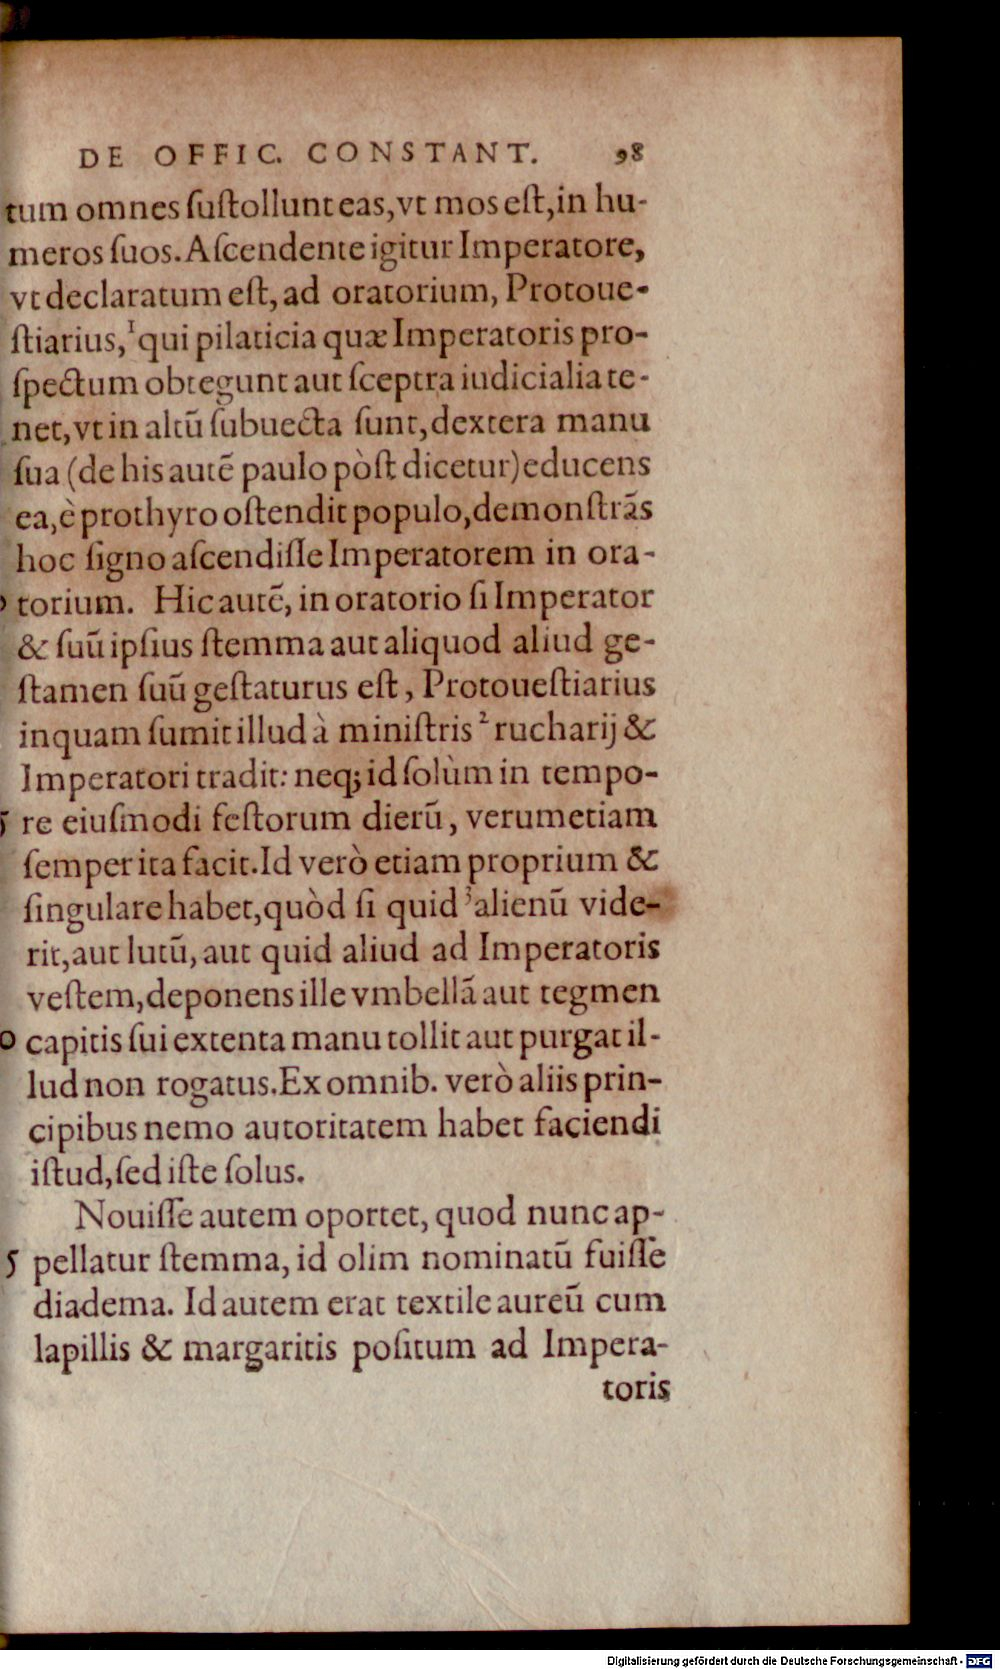 DE OFFIC. CONSTANT. 98
tum omnes ſuſtollunt eas, vt mos eſt, in hu-
meros ſuos. Aſcendente igitur Imperatore,
vt declaratum eſt, ad oratorium, Protoue-
ſtiarius,¹ qui pilaticia quæ Imperatoris pro-
ſpectum obtegunt aut ſceptra iudicialia te-
net, vt in altū ſubuecta ſunt, dextera manu
ſua (de his autē paulo pòſt dicetur) educens
ea, è prothyro oſtendit populo, demonſtrās
hoc ſigno aſcendiſſe Imperatorem in ora-
torium. Hic autē, in oratorio ſi Imperator
& ſuū ipſius ſtemma aut aliquod aliud ge-
ſtamen ſuū geſtaturus eſt, Protoueſtiarius
inquam ſumit illud à miniſtris ² rucharij &
Imperatori tradit: neq; id ſolùm in tempo-
5 re eiuſmodi feſtorum dierū, verumetiam
ſemper ita facit. Id verò etiam proprium &
ſingulare habet, quòd ſi quid ³ alienū vide-
rit, aut lutū, aut quid aliud ad Imperatoris
veſtem, deponens ille vmbellā aut tegmen
0 capitis ſui extenta manu tollit aut purgat il-
lud non rogatus. Ex omnib. verò aliis prin-
cipibus nemo autoritatem habet faciendi
iſtud, ſed iſte ſolus.
Nouiſſe autem oportet, quod nunc ap-
5 pellatur ſtemma, id olim nominatū fuiſſe
diadema. Id autem erat textile aureū cum
lapillis & margaritis poſitum ad Impera-
toris
Digitalisierung gefördert durch die Deutsche Forschungsgemeinschaft - DFG